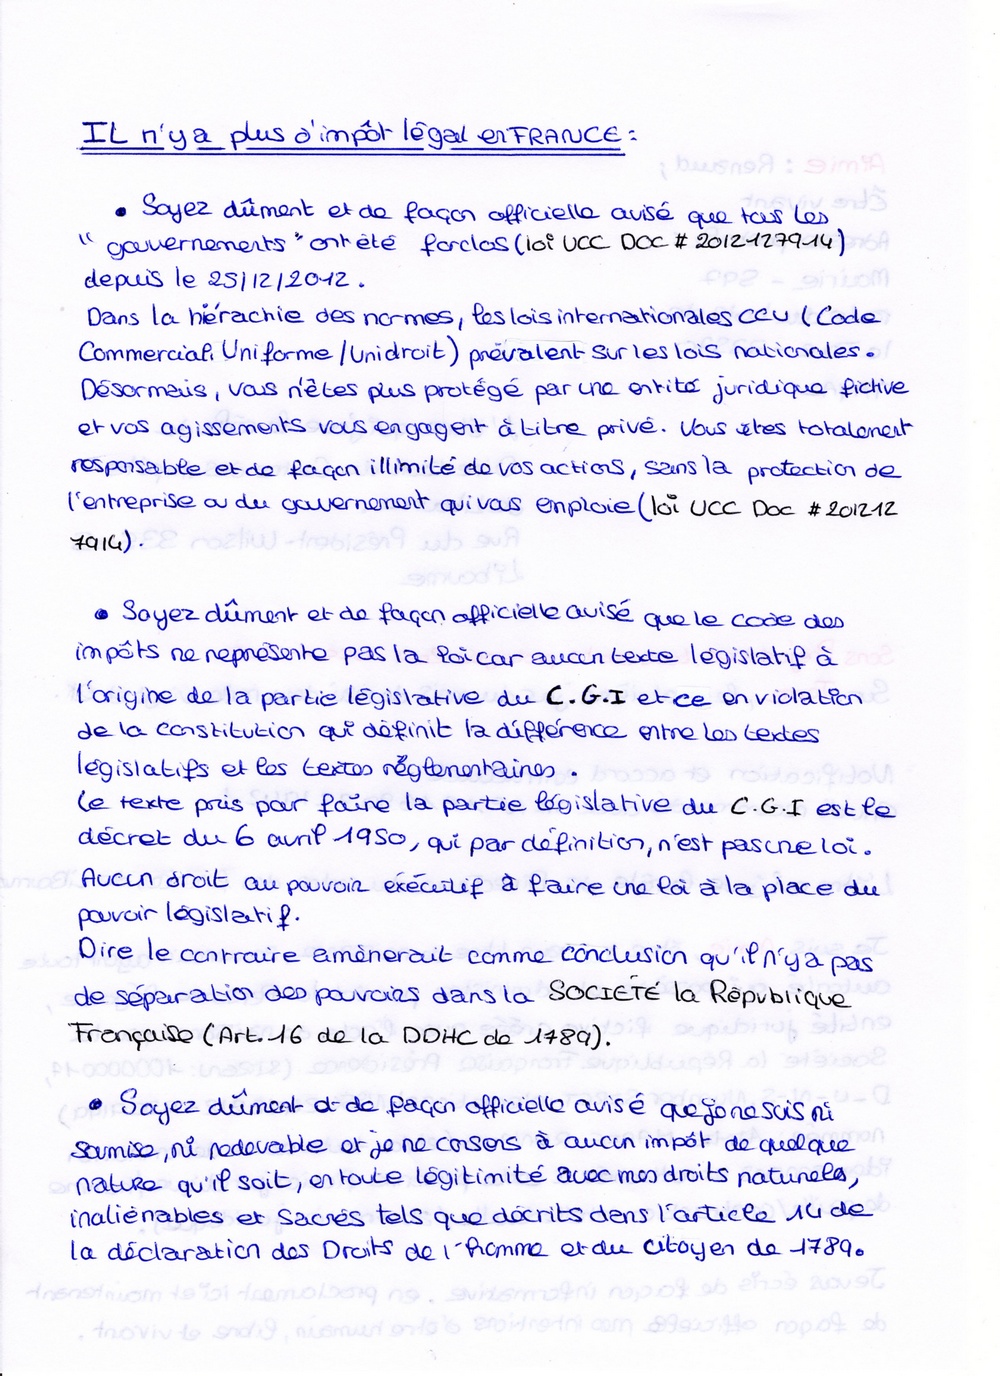 IL n'y a plus d'impôt légal en FRANCE :
• Soyez dûment et de façon officielle avisé que tous les
"gouvernements" ont été forclos (loi UCC DOC # 2012127914)
depuis le 25/12/2012.
Dans la hiérachie des normes, les lois internationales CCU (Code
Commercial Uniforme / Unidroit) prévalent sur les lois nationales.
Désormais, vous n'êtes plus protégé par une entité juridique fictive
et vos agissements vous engagent à titre privé. Vous êtes totalement
responsable et de façon illimité de vos actions, sans la protection de
l'entreprise ou du gouvernement qui vous emploie (loi UCC Doc # 201212
7914).
• Soyez dûment et de façon officielle avisé que le code des
impôts ne représente pas la loi car aucun texte législatif à
l'origine de la partie législative du C.G.I et ce en violation
de la constitution qui définit la différence entre les textes
législatifs et les textes réglementaires.
Le texte pris pour faire la partie législative du C.G.I est le
décret du 6 avril 1950, qui par définition, n'est pas une loi.
Aucun droit au pouvoir exécutif à faire une loi à la place du
pouvoir législatif.
Dire le contraire amènerait comme conclusion qu'il n'y a pas
de séparation des pouvoirs dans la SOCIETÉ la République
Française (Art. 16 de la DDHC de 1789).
• Soyez dûment et de façon officielle avisé que je ne suis ni
soumise, ni redevable et je ne consens à aucun impôt de quelque
nature qu'il soit, en toute légitimité avec mes droits naturels,
inaliénables et sacrés tels que décrits dans l'article 14 de
la déclaration des Droits de l'Homme et du citoyen de 1789.